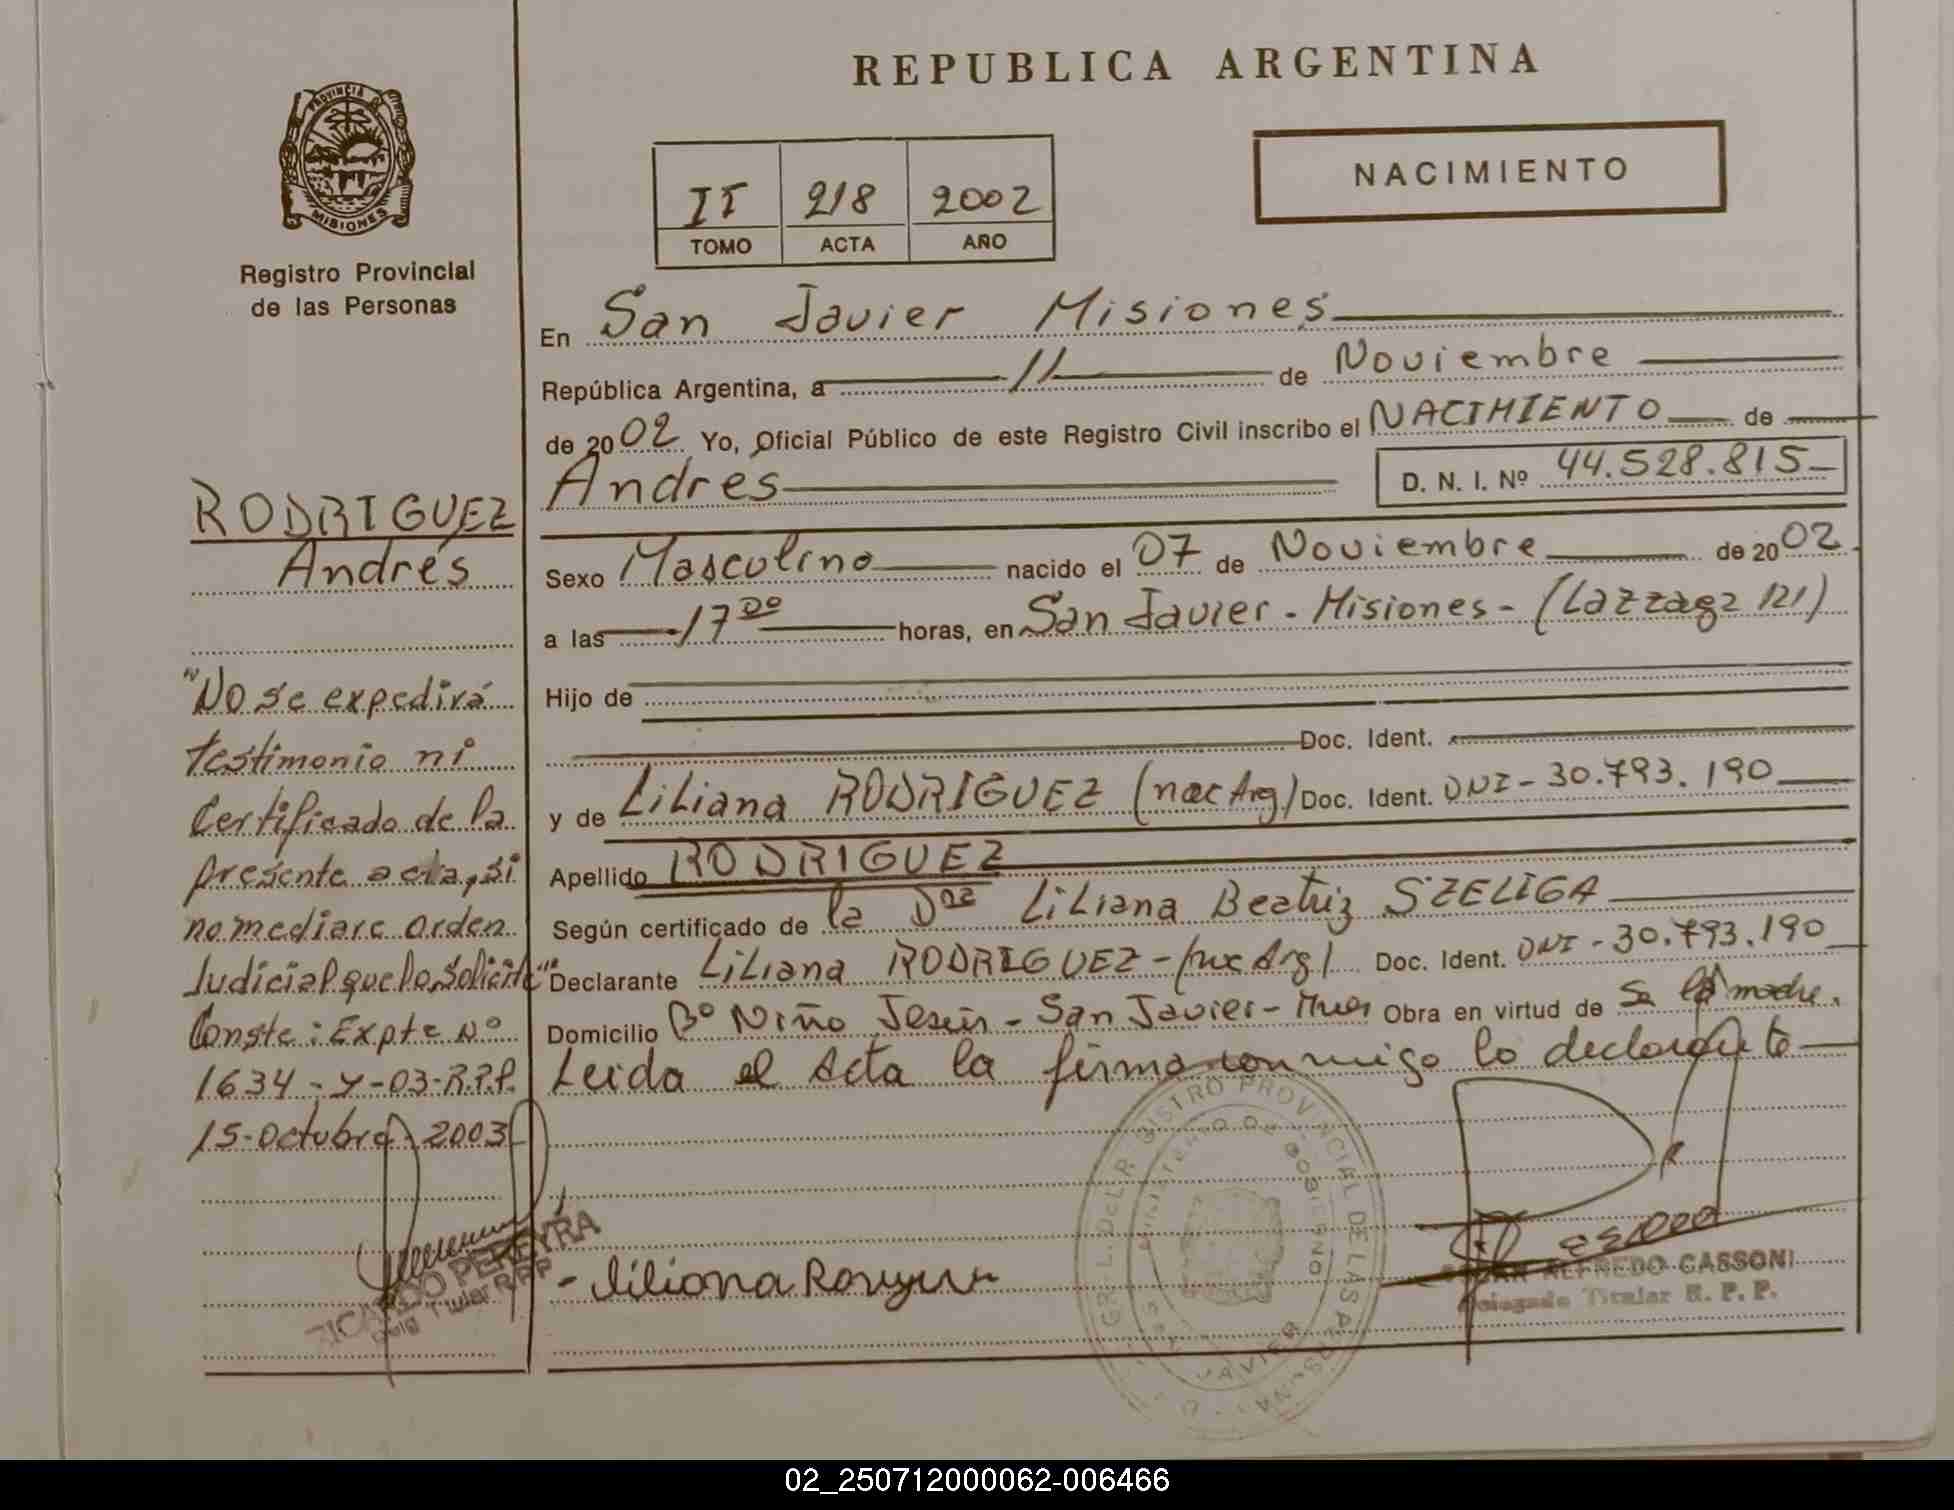 REPUBLICA ARGENTINA
PROVINCIA DE
MISIONES
Registro Provincial
de las Personas
II 218 2002
TOMO ACTA AÑO
NACIMIENTO
En San Javier Misiones
República Argentina, a 11 de Noviembre
de 2002 Yo, Oficial Público de este Registro Civil inscribo el NACIMIENTO de
Andrés
D. N. I. Nº 44.528.815
Sexo Masculino nacido el 07 de Noviembre de 2002
a las 17 00 horas, en San Javier - Misiones - (Lazzaga 121)
Hijo de
Doc. Ident.
y de Liliana RODRIGUEZ (nac Arg) Doc. Ident. DNI - 30.793.190
Apellido RODRIGUEZ
Según certificado de la Dra Liliana Beatriz SZELIGA
Declarante Liliana RODRIGUEZ - (nac Arg) Doc. Ident. DNI - 30.793.190
Domicilio Bº Niño Jesús - San Javier - Mnes Obra en virtud de Se la madre.
Leida el Acta la firma conmigo lo declarante
RODRIGUEZ
Andrés
"No se expedirá
testimonio ni
Certificado de la
presente acta, si
no mediare orden
Judicial que lo solicite"
Conste: Expte Nº
1634 - Y - 03 - R.P.P.
15 - Octubre - 2003
RICARDO PEREYRA
Deleg Titular R.P.P.
- Liliana
REGISTRO PROVINCIAL DE LAS PERSONAS
MINISTERIO DE GOBIERNO
JAVIER
OSCAR ALFREDO CASSONI
Delegado Titular R. P. P.
02_250712000062-006466